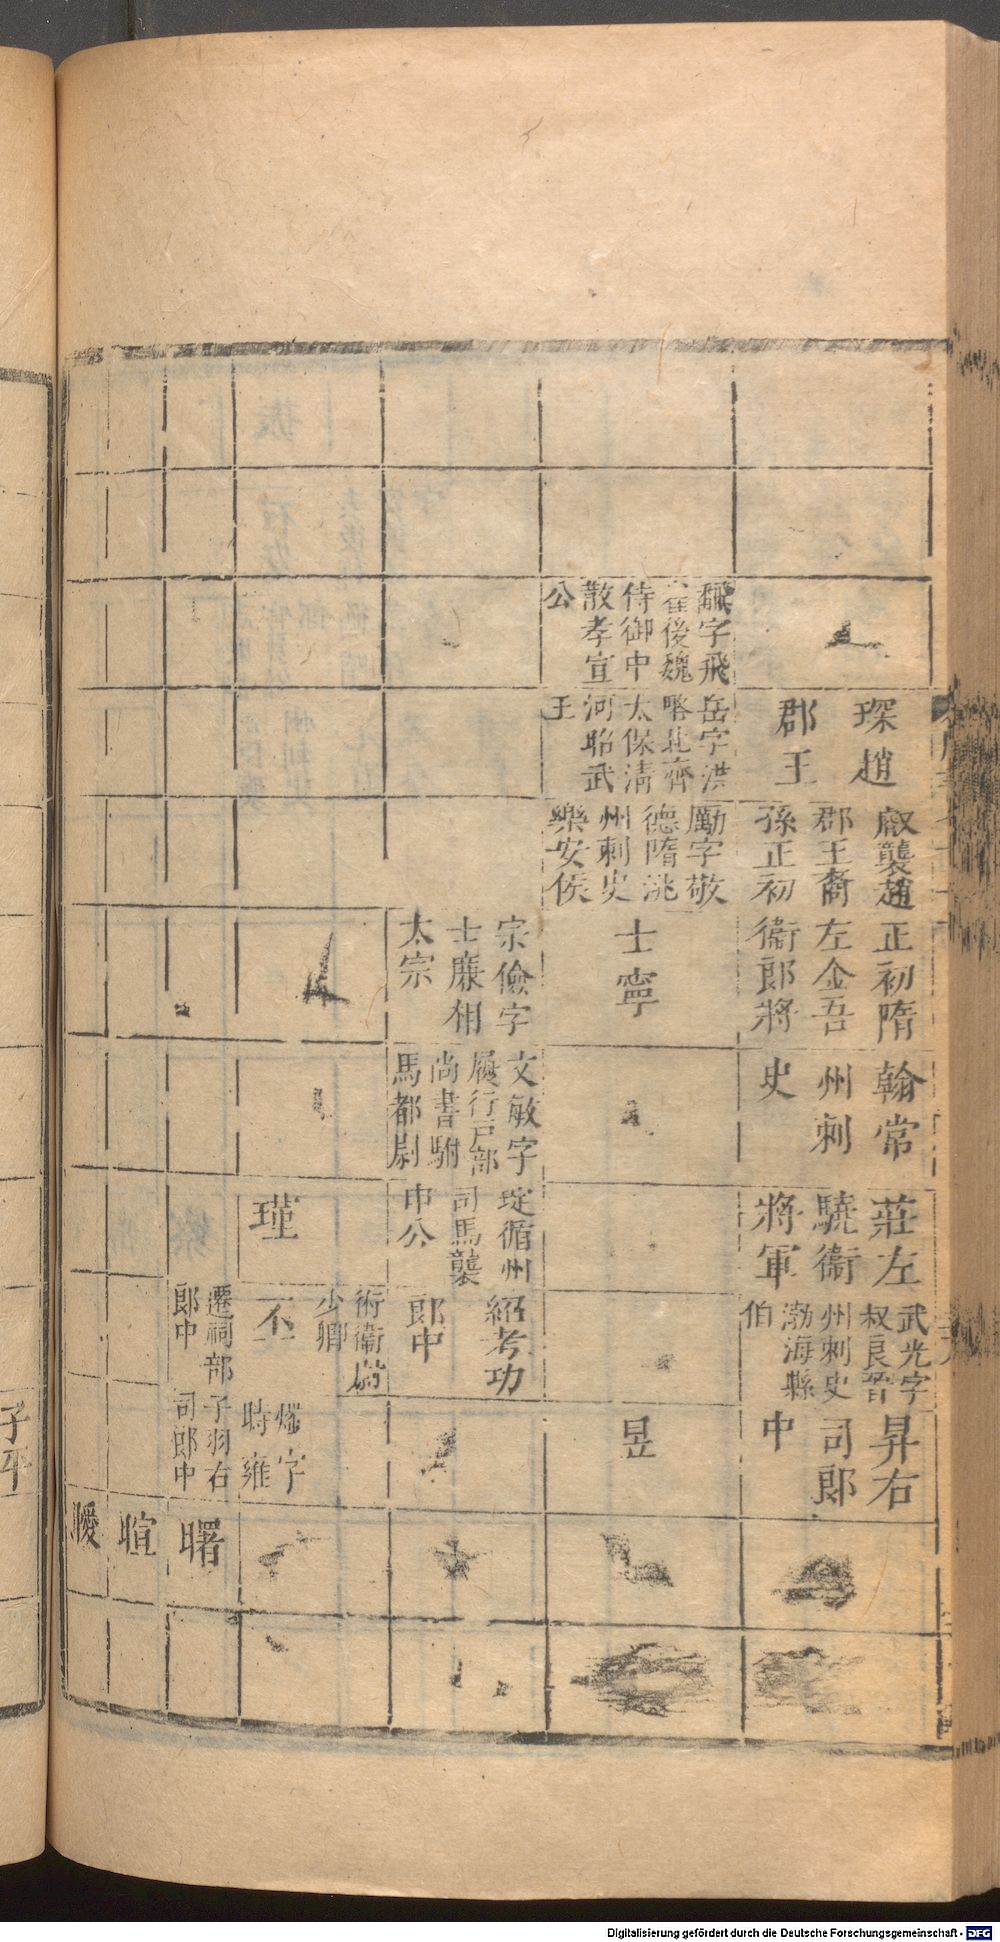 琛趙
郡王
叡襲趙
郡王裔
孫正初
正初隋
左金吾
衛郎將
翰常
州刺
史
莊左
驍衛
將軍
武光字
叔良晉
州刺史
渤海縣
伯
昇右
司郎
中
翻字飛
雀後魏
侍御中
散孝宣
公
岳字洪
略北齊
太保清
河昭武
王
勵字敬
德隋洮
州刺史
樂安侯
士寧
昱
宗儉字
士廉相
太宗
文敏字
履行戸部
尚書駙
馬都尉
琁循州
司馬襲
申公
紹考功
郎中
瑾
術衛尉
少卿
丕
燧字
時雍
遷祠部
郎中
子羽右
司郎中
曙
暄
曖
子平
Digitalisierung gefördert durch die Deutsche Forschungsgemeinschaft - DFG